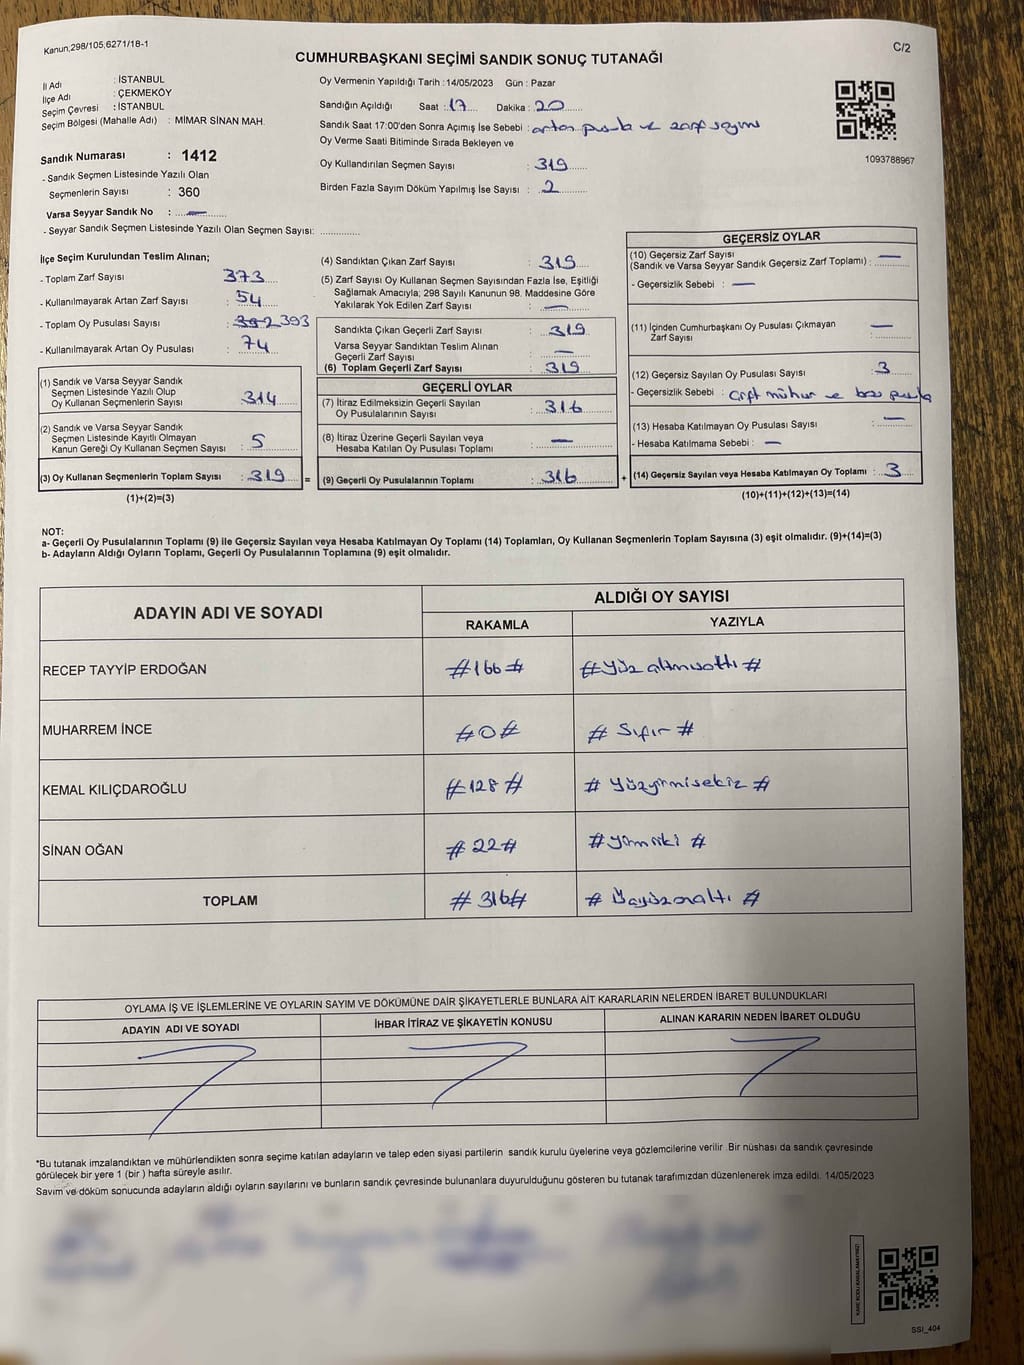 Kanun,298/105;6271/18-1
C/2
CUMHURBAŞKANI SEÇİMİ SANDIK SONUÇ TUTANAĞI
İl Adı : İSTANBUL
İlçe Adı : ÇEKMEKÖY
Seçim Çevresi : İSTANBUL
Seçim Bölgesi (Mahalle Adı) : MİMAR SİNAN MAH.
Sandık Numarası : 1412
- Sandık Seçmen Listesinde Yazılı Olan
Seçmenlerin Sayısı : 360
Varsa Seyyar Sandık No : —
- Seyyar Sandık Seçmen Listesinde Yazılı Olan Seçmen Sayısı: ..............
Oy Vermenin Yapıldığı Tarih :14/05/2023 Gün : Pazar
Sandığın Açıldığı Saat : 17 Dakika : 20
Sandık Saat 17:00'den Sonra Açımış İse Sebebi : artan pusula ve zarf sayımı
Oy Verme Saati Bitiminde Sırada Bekleyen ve
Oy Kullandırılan Seçmen Sayısı : 319
Birden Fazla Sayım Döküm Yapılmış İse Sayısı : 2
1093788967
İlçe Seçim Kurulundan Teslim Alınan;
- Toplam Zarf Sayısı 373
- Kullanılmayarak Artan Zarf Sayısı : 54
- Toplam Oy Pusulası Sayısı : 392 393
- Kullanılmayarak Artan Oy Pusulası : 74
(1) Sandık ve Varsa Seyyar Sandık
Seçmen Listesinde Yazılı Olup
Oy Kullanan Seçmenlerin Sayısı : 314
(2) Sandık ve Varsa Seyyar Sandık
Seçmen Listesinde Kayıtlı Olmayan
Kanun Gereği Oy Kullanan Seçmen Sayısı : 5
(3) Oy Kullanan Seçmenlerin Toplam Sayısı : 319 =
(1)+(2)=(3)
(4) Sandıktan Çıkan Zarf Sayısı : 319
(5) Zarf Sayısı Oy Kullanan Seçmen Sayısından Fazla İse, Eşitliği
Sağlamak Amacıyla; 298 Sayılı Kanunun 98. Maddesine Göre
Yakılarak Yok Edilen Zarf Sayısı : —
Sandıkta Çıkan Geçerli Zarf Sayısı : 319
Varsa Seyyar Sandıktan Teslim Alınan
Geçerli Zarf Sayısı : —
(6) Toplam Geçerli Zarf Sayısı : 319
GEÇERLİ OYLAR
(7) İtiraz Edilmeksizin Geçerli Sayılan
Oy Pusulalarının Sayısı : 316
(8) İtiraz Üzerine Geçerli Sayılan veya
Hesaba Katılan Oy Pusulası Toplamı : —
(9) Geçerli Oy Pusulalarının Toplamı : 316 +
GEÇERSİZ OYLAR
(10) Geçersiz Zarf Sayısı
(Sandık ve Varsa Seyyar Sandık Geçersiz Zarf Toplamı) : —
- Geçersizlik Sebebi : —
(11) İçinden Cumhurbaşkanı Oy Pusulası Çıkmayan
Zarf Sayısı : —
(12) Geçersiz Sayılan Oy Pusulası Sayısı : 3
- Geçersizlik Sebebi : Çift mühür ve boş pusula
(13) Hesaba Katılmayan Oy Pusulası Sayısı : —
- Hesaba Katılmama Sebebi : —
(14) Geçersiz Sayılan veya Hesaba Katılmayan Oy Toplamı : 3
(10)+(11)+(12)+(13)=(14)
NOT:
a- Geçerli Oy Pusulalarının Toplamı (9) ile Geçersiz Sayılan veya Hesaba Katılmayan Oy Toplamı (14) Toplamları, Oy Kullanan Seçmenlerin Toplam Sayısına (3) eşit olmalıdır. (9)+(14)=(3)
b- Adayların Aldığı Oyların Toplamı, Geçerli Oy Pusulalarının Toplamına (9) eşit olmalıdır.
ADAYIN ADI VE SOYADI ALDIĞI OY SAYISI
RAKAMLA YAZIYLA
RECEP TAYYİP ERDOĞAN #166# #Yüz altmışaltı#
MUHARREM İNCE #0# # Sıfır #
KEMAL KILIÇDAROĞLU #128# # Yüzyirmisekiz #
SİNAN OĞAN #22# #Yirmiiki #
TOPLAM #316# # Üçyüzonaltı #
OYLAMA İŞ VE İŞLEMLERİNE VE OYLARIN SAYIM VE DÖKÜMÜNE DAİR ŞİKAYETLERLE BUNLARA AİT KARARLARIN NELERDEN İBARET BULUNDUKLARI
ADAYIN ADI VE SOYADI İHBAR İTİRAZ VE ŞİKAYETİN KONUSU ALINAN KARARIN NEDEN İBARET OLDUĞU
*Bu tutanak imzalandıktan ve mühürlendikten sonra seçime katılan adayların ve talep eden siyasi partilerin sandık kurulu üyelerine veya gözlemcilerine verilir .Bir nüshası da sandık çevresinde
görülecek bir yere 1 (bir ) hafta süreyle asılır.
Sayım ve döküm sonucunda adayların aldığı oyların sayılarını ve bunların sandık çevresinde bulunanlara duyurulduğunu gösteren bu tutanak tarafımızdan düzenlenerek imza edildi. 14/05/2023
KARE KODU KARALAMAYINIZ!
SSI_404